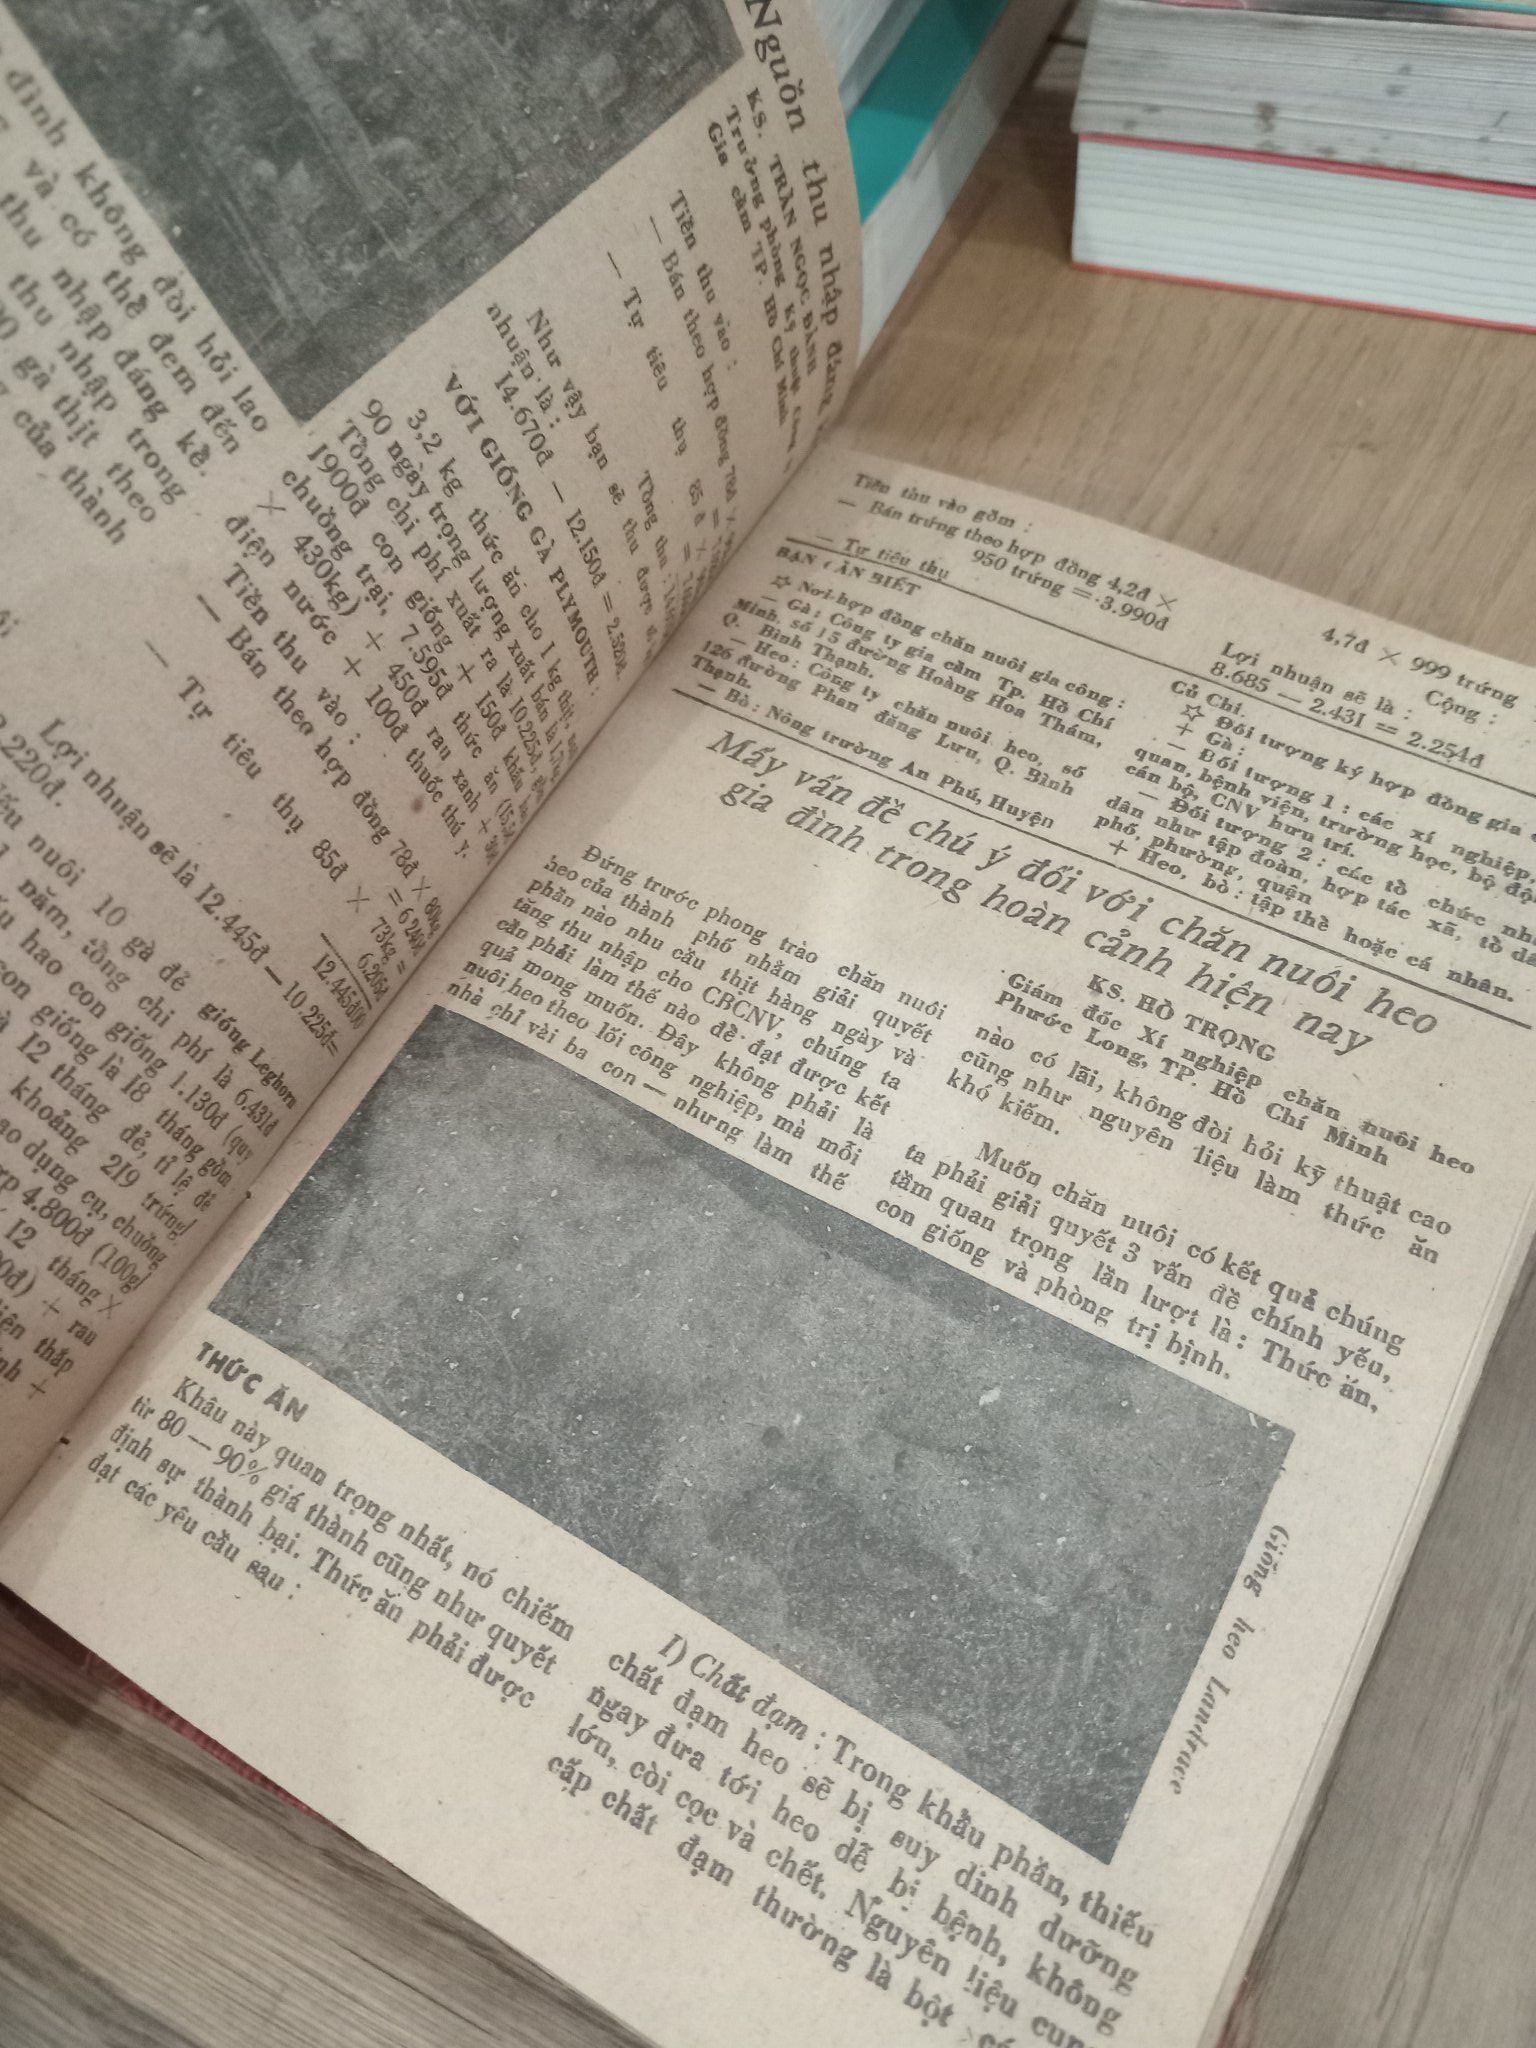 Nguồn thu nhập đáng
KS. TRẦN NGỌC ĐÀNH
Trưởng phòng Kỹ thuật Công
Gia cầm TP. Hồ Chí Minh
đình không đòi hỏi lao
và có thể đem đến
thu nhập đáng kể.
thu nhập trong
gà thịt theo
của thành
Tiền thu vào :
— Bán theo hợp đồng 78đ ×
— Tự tiêu thụ 85đ ×
Tổng thu :
Như vậy bạn sẽ thu được
nhuận là :
14.670đ — 12.150đ = 2.520đ.
VỚI GIỐNG GÀ PLYMOUTH :
3,2 kg thức ăn cho 1 kg thịt,
90 ngày trọng lượng xuất bán là
Tổng chi phí xuất ra là 10.225đ,
1900đ con giống + 150đ khấu
chuồng trại, 7.595đ thức ăn
× 430kg) + 450đ rau xanh +
điện nước + 100đ thuốc thú y.
Tiền thu vào :
— Bán theo hợp đồng 78đ × 80kg
= 6240đ
— Tự tiêu thụ 85đ × 73kg =
6.205đ
12.445đ00
Lợi nhuận sẽ là 12.445đ — 10.225đ=
2.220đ.
nuôi 10 gà đẻ giống Leghorn
năm, tổng chi phí là 6.431đ
hao con giống 1.130đ (quy
con giống là 18 tháng gồm
12 tháng đẻ, tỉ lệ đẻ
khoảng 219 trứng/
dụng cụ, chuồng
4.800đ (100g/
12 tháng ×
+ rau
thắp
+
Tiền thu vào gồm :
— Bán trứng theo hợp đồng 4,2đ ×
950 trứng = 3.990đ
— Tự tiêu thụ
4,7đ × 999 trứng
Cộng :
Lợi nhuận sẽ là :
8.685 — 2.431 = 2.254đ
BẠN CẦN BIẾT
☆ Nơi hợp đồng chăn nuôi gia công :
— Gà : Công ty gia cầm Tp. Hồ Chí
Minh, số 15 đường Hoàng Hoa Thám,
Q. Bình Thạnh.
— Heo : Công ty chăn nuôi heo, số
126 đường Phan đăng Lưu, Q. Bình
Thạnh.
— Bò : Nông trường An Phú, Huyện
Củ Chi.
☆ Đối tượng ký hợp đồng gia
+ Gà :
— Đối tượng 1 : các xí nghiệp,
quan, bệnh viện, trường học, bộ đội
cán bộ, CNV hưu trí.
— Đối tượng 2 : các tổ chức
dân như tập đoàn, hợp tác xã, tổ
phố, phường, quận
+ Heo, bò : tập thể hoặc cá nhân.
Mấy vấn đề chú ý đối với chăn nuôi heo
gia đình trong hoàn cảnh hiện nay
KS. HỒ TRỌNG
Giám đốc Xí nghiệp chăn nuôi heo
Phước Long, TP. Hồ Chí Minh
Đứng trước phong trào chăn nuôi
heo của thành phố nhằm giải quyết
phần nào nhu cầu thịt hàng ngày và
tăng thu nhập cho CBCNV, chúng ta
cần phải làm thế nào để đạt được kết
quả mong muốn. Đây không phải là
nuôi heo theo lối công nghiệp, mà mỗi
nhà chỉ vài ba con — nhưng làm thế
nào có lãi, không đòi hỏi kỹ thuật cao
cũng như nguyên liệu làm thức ăn
khó kiếm.
Muốn chăn nuôi có kết quả chúng
ta phải giải quyết 3 vấn đề chính yếu,
tầm quan trọng lần lượt là : Thức ăn,
con giống và phòng trị bịnh.
Giống heo Landrace
THỨC ĂN
Khâu này quan trọng nhất, nó chiếm
từ 80 — 90% giá thành cũng như quyết
định sự thành bại. Thức ăn phải được
đạt các yêu cầu sau :
1) Chất đạm : Trong khẩu phần, thiếu
chất đạm heo sẽ bị suy dinh dưỡng
ngay đưa tới heo dễ bị bệnh, không
lớn, còi cọc và chết. Nguyên liệu cung
cấp chất đạm thường là bột cá